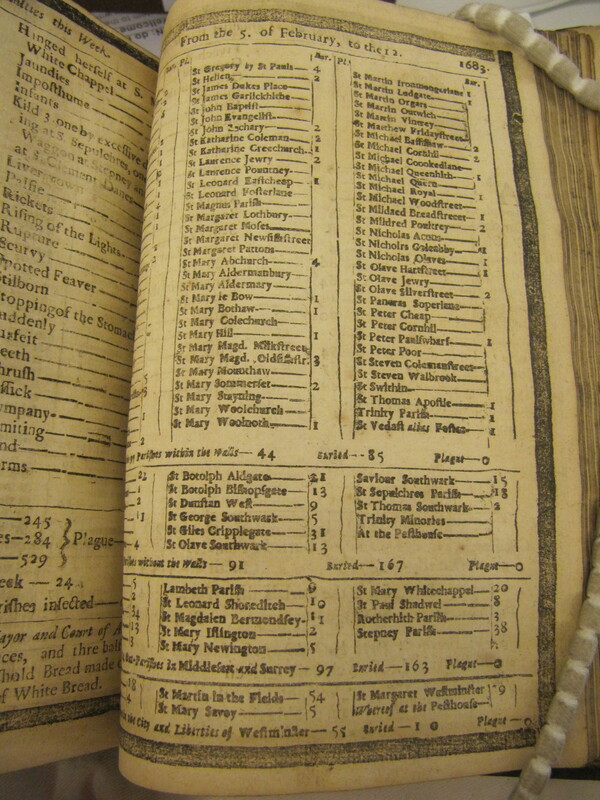 alties this Week.
Hinged herself at S. M
White Chappel
Jaundies
Imposthume
Infants
Kild 3 one by excessive d
ing at S. Sepulchres, one
Waggon at Stepney an
at S. Clement Danes
Livergrown
Palsie
Rickets
Rising of the Lights
Rupture
Scurvy
Spotted Feaver
Stilborn
Stopping of the Stomac
Suddenly
Surfeit
Teeth
Thrush
ompany
miting
rms
245
es—284 } Plague
529
eek — 24
rishes infected
ayor and Court of A
ces, and thre half
hold Bread made
f White Bread.
From the 5. of February, to the 12. 1683.
Bur. Pl. Bur.
St Gregory by St Pauls — 4
St Hellen — 2
St James Dukes Place
St James Garlickhithe
St John Baptist
St John Evangelist
St John Zachary — 2
St Katharine Coleman — 2
St Katharine Creechurch — 1
St Laurence Jewry — 2
St Laurence Pountney
St Leonard Eastcheap — 1
St Leonard Fosterlane
St Magnus Parish
St Margaret Lothbury
St Margaret Moses
St Margaret Newfishstreet
St Margaret Pattons
St Mary Abchurch — 4
St Mary Aldermanbury
St Mary Aldermary
St Mary le Bow — 1
St Mary Bothaw — 1
St Mary Colechurch
St Mary Hill — 1
St Mary Magd. Milkstreet
St Mary Magd. Oldfishstr. 3
St Mary Mounthaw
St Mary Sommerset — 2
St Mary Stayning
St Mary Woolchurch
St Mary Woolnoth — 1
St Martin Ironmongerlane 1
St Martin Ludgate — 1
St Martin Orgars — 1
St Martin Outwich
St Martin Vintrey
St Matthew Fridaystreet
St Michael Bassishaw — 2
St Michael Cornhil — 2
St Michael Crookedlane
St Michael Queenhith — 1
St Michael Quern
St Michael Royal — 1
St Michael Woodstreet
St Mildred Breadstreet — 1
St Mildred Poultrey — 2
St Nicholas Acons
St Nicholas Coleabby — 1
St Nicholas Olaves — 1
St Olave Hartstreet — 1
St Olave Jewry
St Olave Silverstreet — 2
St Pancras Soperlane
St Peter Cheap
St Peter Cornhil
St Peter Paulswharf — 1
St Peter Poor
St Steven Colemanstreet
St Steven Walbrook
St Swithin
St Thomas Apostle — 1
Trinity Parish — 1
St Vedast alias Foster — 1
Parishes within the Walls — 44 Buried — 85 Plague — 0
St Botolph Aldgate — 21
St Botolph Bishopsgate — 13
St Dunstan West — 9
St George Southwark — 5
St Giles Cripplegate — 31
St Olave Southwark — 13
Saviour Southwark — 15
St Sepulchres Parish — 18
St Thomas Southwark — 2
Trinity Minories
At the Pesthouse
rishes without the Walls — 91 Buried — 167 Plague — 0
Lambeth Parish — 6
St Leonard Shoreditch — 10
St Magdalen Bermondsey — 11
St Mary Islington — 2
St Mary Newington — 5
St Mary Whitechappel — 20
St Paul Shadwel — 8
Rotherhith Parish — 3
Stepney Parish — 38
Parishes in Middlesex and Surrey — 97 Buried — 163 Plague — 0
St Martin in the Fields — 54
St Mary Savoy — 5
St Margaret Westminster
at the Pesthouse
the City and Liberties of Westminster — 55 Buried Plague — 0